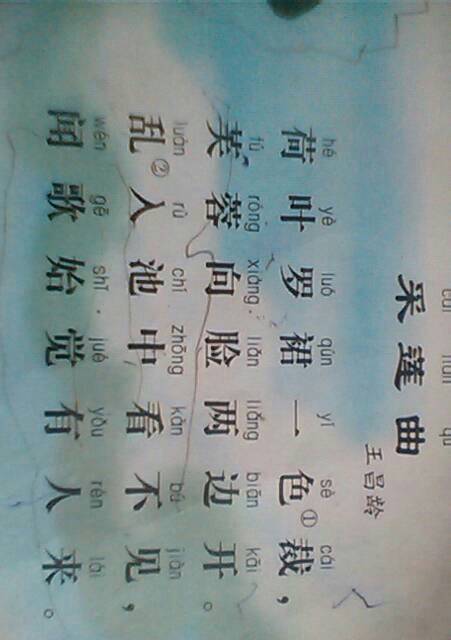 cǎi lián qǔ
采莲曲
王昌龄
hé yè luó qún yī sè cái
荷叶罗裙一色①裁，
fú róng xiàng liǎn liǎng biān kāi
芙蓉向脸两边开。
luàn rù chí zhōng kàn bú jiàn
乱②入池中看不见，
wén gē shǐ jué yǒu rén lái
闻歌始觉有人来。